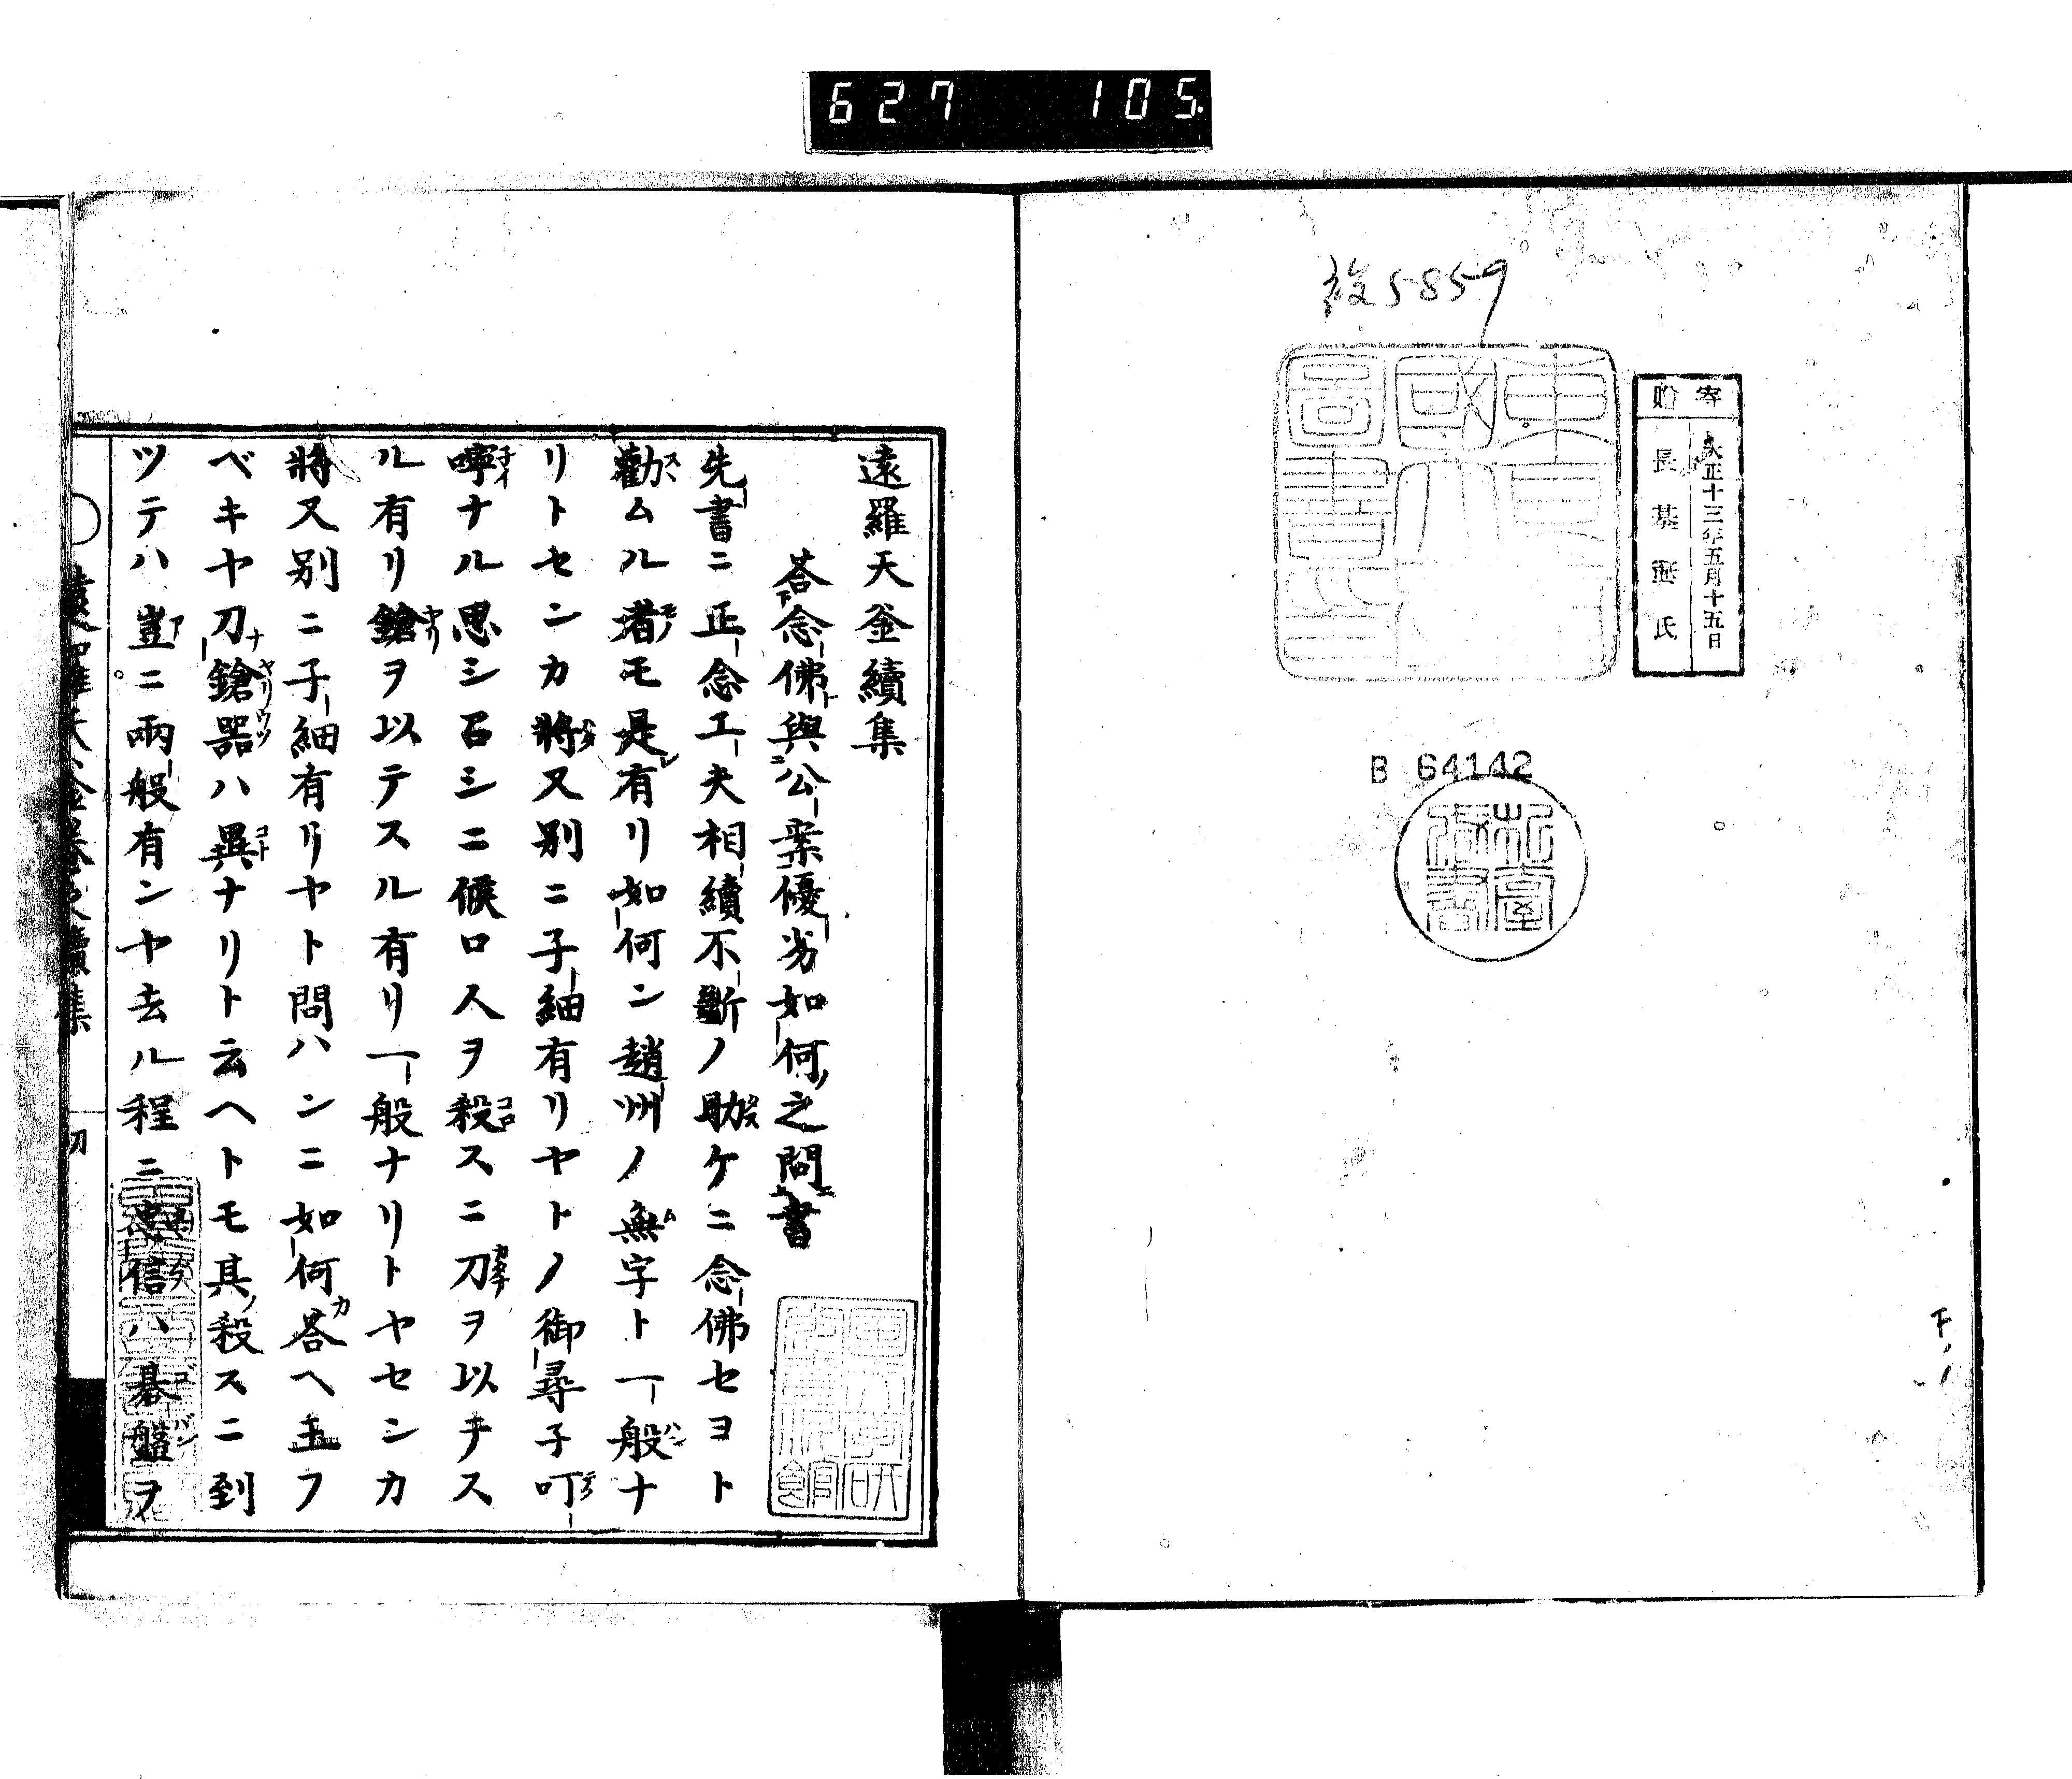 627 105
設5859
寄贈
大正十三年五月十五日
長基連氏
B 64142
遠羅天釜續集
荅念佛與公案優劣如何之問書
先書ニ正念工夫相續不斷ノ助ケニ念佛セヨト
勸ムル者モ是有リ如何ン趙州ノ無字ト一般ナ
リトセンカ將又別ニ子細有リヤトノ御尋子叮
嚀ナル思シ召シニ候ロ人ヲ殺スニ刀ヲ以テス
ル有リ鎗ヲ以テスル有リ一般ナリトヤセンカ
將又別ニ子細有リヤト問ハンニ如何荅ヘ玉フ
ベキヤ刀鎗器ハ異ナリト云ヘトモ其殺スニ到
ツテハ豈ニ兩般有ンヤ去ル程ニ忠信ハ碁盤ヲ